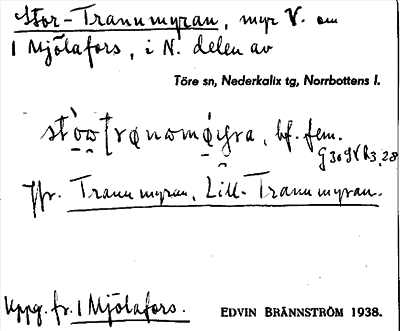 Stor-Tranumyran, myr V. om
1 Mjölafors, i N. delen av
Töre sn, Nederkalix tg, Norrbottens l.
bf. fem.
Jfr. Tranumyran, Lill-Tranumyran.
Uppg. fr. 1 Mjölafors. EDVIN BRÄNNSTRÖM 1938.